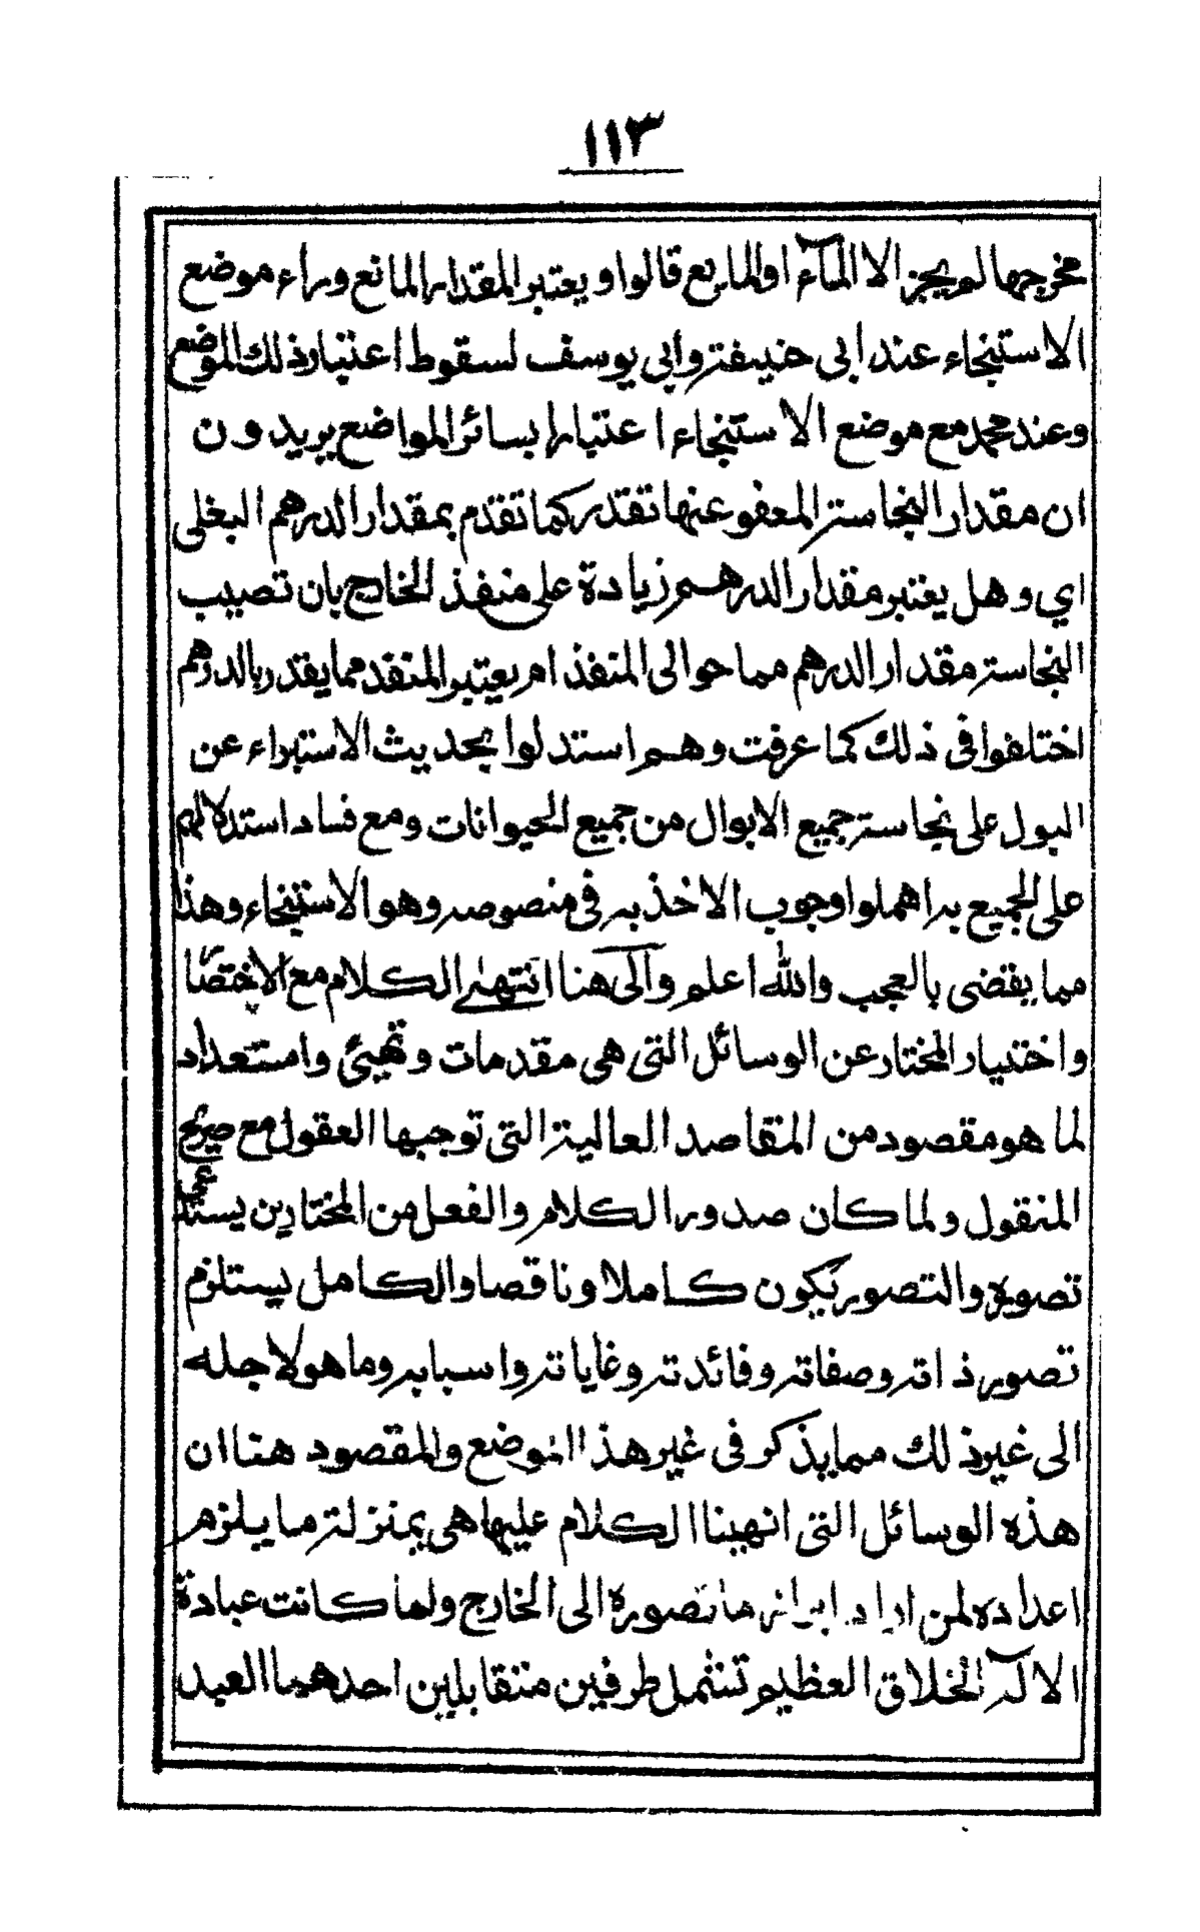 ١١٣
مخرجها لم يجز الا المآء او المايع قالوا و يعتبر المقدار المانع وراء موضع
الاستنجاء عند ابى حنيفة وأبي يوسف لسقوط اعتبار ذلك الموضع
وعند محمد مع موضع الاستنجاء اعتبارا بسائر المواضع يريدون
ان مقدار النجاسة المعفو عنها تقدر كما تقدم بمقدار الدرهم البغلى
اي وهل يعتبر مقدار الدرهم زيادة على منفذ الخارج بان تصيب
النجاسة مقدار الدرهم مما حوالى المنفذ ام يعتبر المنفذ مما يقدر بالدرهم
اختلفوا فى ذلك كما عرفت وهم استدلوا بحديث الاستبراء عن
البول على نجاسة جميع الابوال من جميع الحيوانات ومع فساد استدلالهم
على الجميع به اهملوا وجوب الاخذ به فى منصوصه وهو الاستنجاء وهذا
مما يقضى بالعجب والله اعلم وآلى هنا انتهى الكلام مع الاختصا
واختيار المختار عن الوسائل التى هى مقدمات وتهيئ واستعداد
لما هو مقصود من المقاصد العالية التى توجبها العقول مع صريح
المنقول ولما كان صدور الكلام والفعل من المختارين يستدعى
تصوره والتصور يكون كاملا وناقصا والكامل يستلزم
تصور ذاته وصفاته وفائدته وغاياته واسبابه وما هو لاجله
الى غير ذلك مما يذكر فى غير هذا الموضع والمقصود هنا ان
هذه الوسائل التى انهينا الكلام عليها هى بمنزلة ما يلزم
اعداده لمن اراد ابرازه ما تصوره الى الخارج ولما كانت عبادة
الاله الخلاق العظيم تشمل طرفين متقابلين احدهما العبد